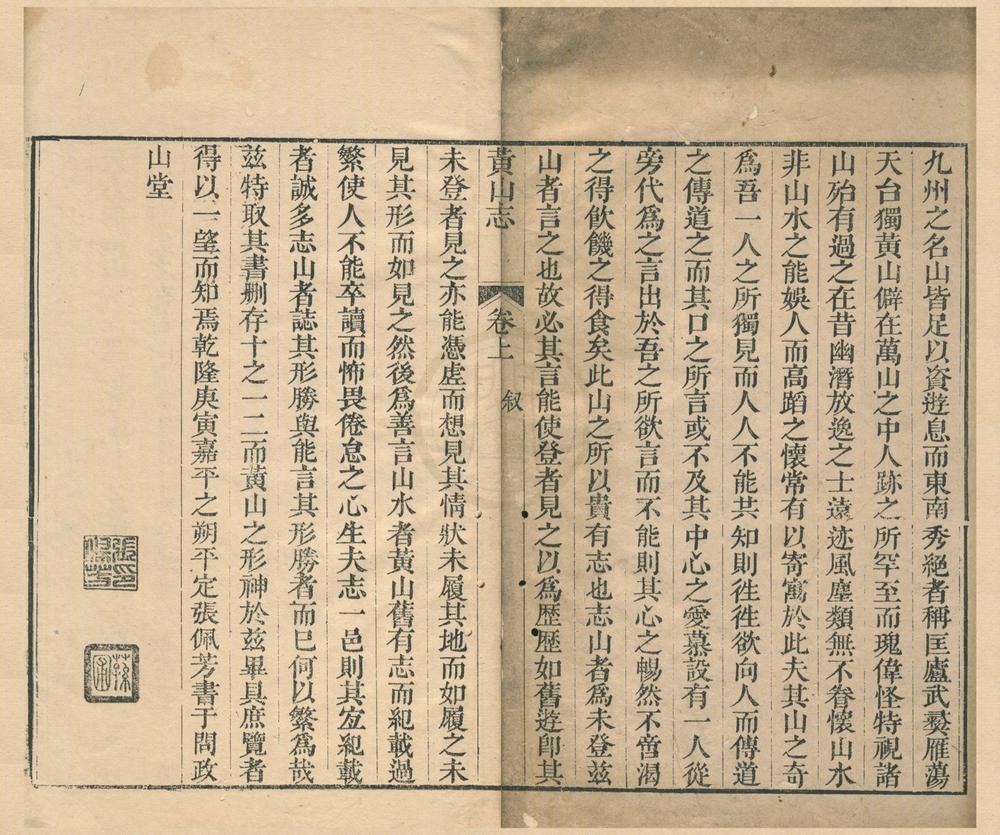 九州之名山皆足以資遊息而東南秀絕者稱匡廬武彛雁蕩
天台獨黃山僻在萬山之中人跡之所罕至而瑰偉怪特視諸
山殆有過之在昔幽潛放逸之士遠迹風塵類無不眷懷山水
非山水之能娛人而高蹈之懷常有以寄寓於此夫其山之奇
爲吾一人之所獨見而人人不能共知則徃徃欲向人而傳道
之傳道之而其口之所言或不及其中心之愛慕設有一人從
旁代爲之言出於吾之所欲言而不能則其心之暢然不啻渴
之得飲饑之得食矣此山之所以貴有志也志山者爲未登茲
山者言之也故必其言能使登者見之以爲歷歷如舊遊卽其
黃山志
卷上
叙
未登者見之亦能憑虛而想見其情狀未履其地而如履之未
見其形而如見之然後爲善言山水者黃山舊有志而紀載過
繁使人不能卒讀而怖畏倦怠之心生夫志一邑則其宐紀載
者誠多志山者誌其形勝與能言其形勝者而已何以繁爲哉
茲特取其書删存十之一二而黃山之形神於茲畢具庶覽者
得以一望而知焉乾隆庚寅嘉平之朔平定張佩芳書于問政
山堂
張佩芳印